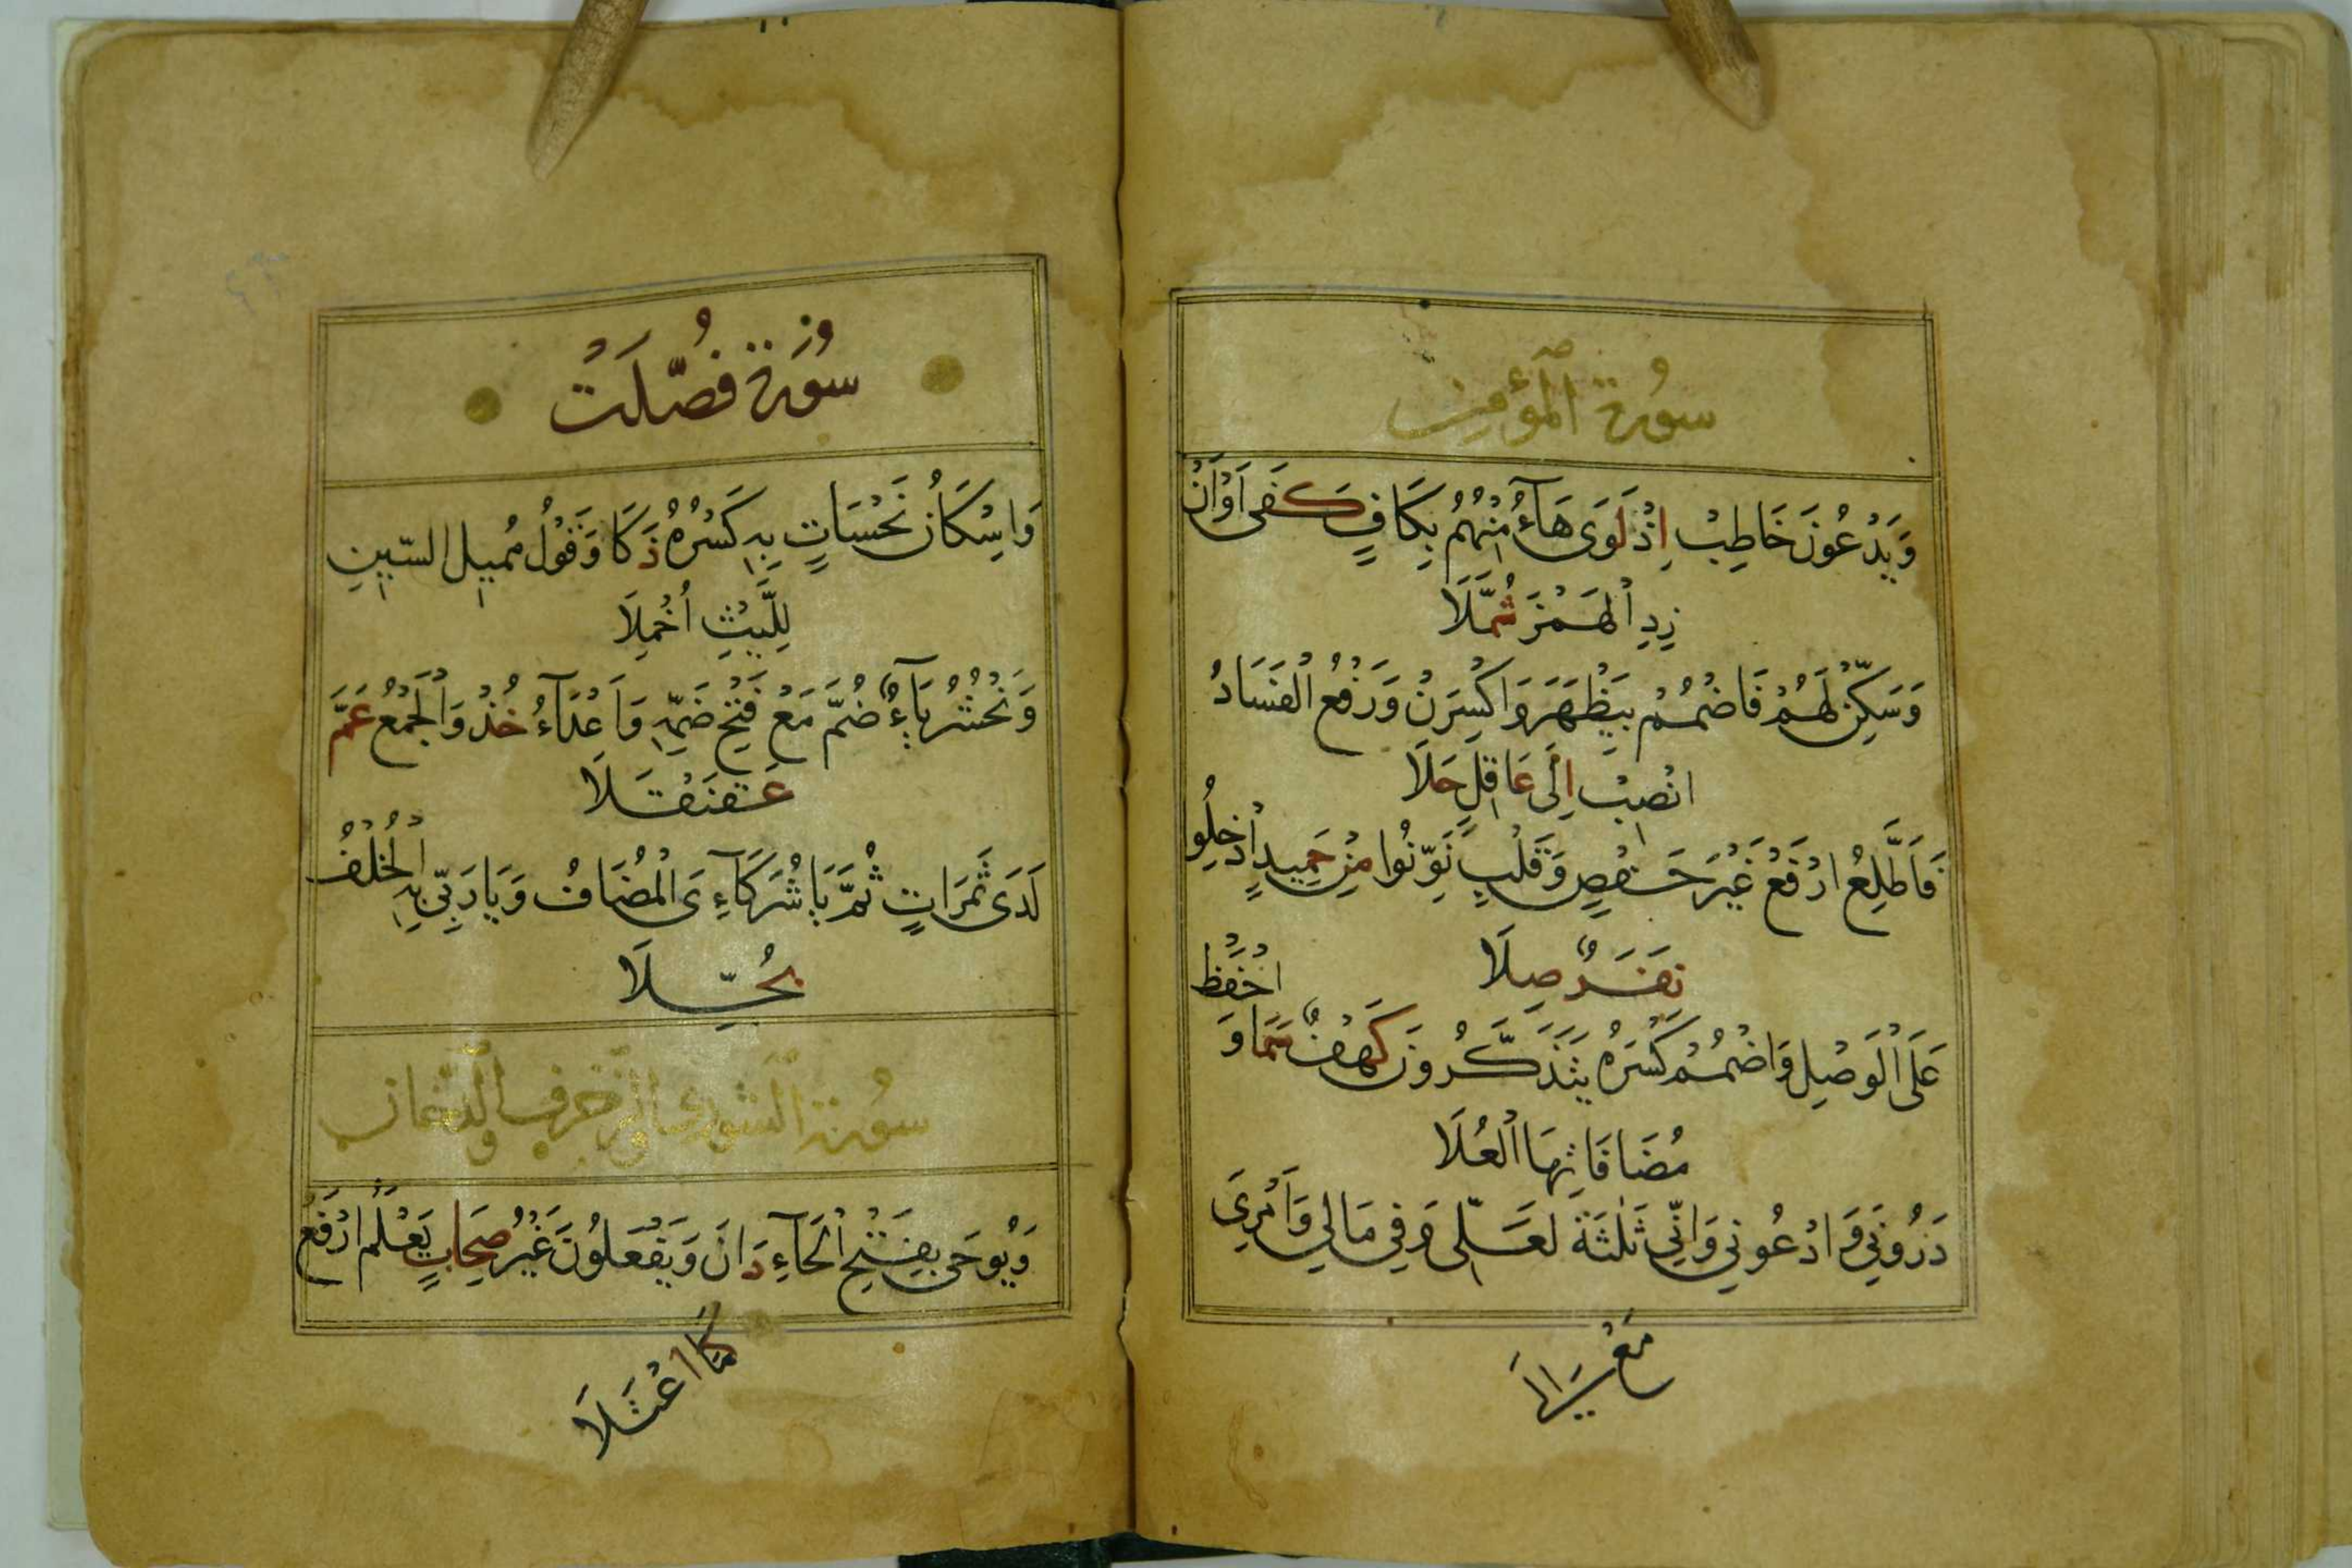 سُورَة المُؤْمِن
وَيَدْعُونَ خَاطِبْ اِذْ لَوَى هَاءُ مِنْهُمُ بِكَافٍ كَفَى اَوْ اَنْ
زِدِ الْهَمْزَ ثُمَّلَا
وَسَكِّنْ لَهُمْ فَاضْمُمْ بِيَظْهَرَ وَاكْسِرَنْ وَرَفْعُ الْفَسَادُ
انْصِبْ اِلَى عَاقِلٍ حَلَا
فَاَطَّلِعُ ارْفَعْ غَيْرَ حَفْصٍ وَقَلْبِ نَوِّنُوا مِنْ حَمِيدٍ اَدْخِلُو
نَفَرٌ صِلَا
اخْفَظ
عَلَى الْوَصْلِ وَاضْمُمْ كَسْرَهُ يَتَذَكَّرُونَ كَهْفٌ سَمَا وَ
مُضَافَاتِهَا الْعُلَا
ذَرُونِي وَادْعُونِي وَاِنِّي ثَلٰثَةٌ لَعَلِّى وَفِي مَالِي وَاَمْرِىَ
مَعْ اِلَى
سُورَة فُصِّلَتْ
وَاِسْكَانُ نَحْسَاتٍ بِهِ كَسْرُهُ ذَكَا وَقَوْلُ مُمِيلِ السِّينِ
لِلَّيْثِ اُخْمِلَا
وَنَحْشُرُ يَاءٌ ضُمَّ مَعْ فَتْحِ ضَمِّهِ وَاَعْدَاءُ خُذْ وَالْجَمْعُ عَمَّ
عَقَنْقَلَا
لَدَى ثَمَرَاتٍ ثُمَّ يَا شُرَكَاءِىَ الْمُضَافُ وَيَا رَبِّى بِهِ الْخُلْفُ
بُجِّلَا
سُورَة الشورى والزخرف والدخان
وَيُوحَى بِفَتْحِ الْحَاءِ دَانَ وَيَفْعَلُونَ غَيْرُ صِحَابٍ يَعْلَمَ ارْفَعْ
كَمَا اعْتَلَا